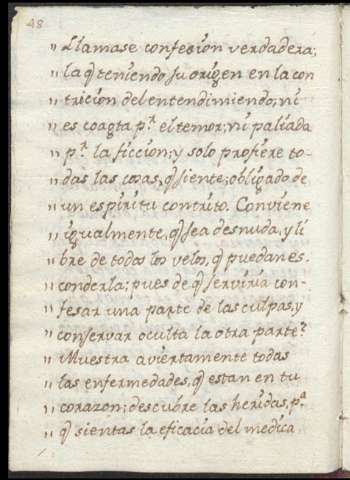 48
" Llamase confesion verdadera;
" la q̃ teniendo su origen en la con
" tricion del entendimiendo, ni
" es coagta p.ʳ el temor; ni paliada
" p.ʳ la ficcion; y solo profiere to-
" das las cosas, q̃ siente; obligado de
" un espiritu contrito. Conviene
" igualmente, q̃ sea desnuda, y li
" bre de todos los velos, q̃ puedan es.
" conderla; pues de q̃ serviria con-
" fesar una parte de las culpas, y
" conservar oculta la otra parte?
" Muestra aviertamente todas
" las enfermedades, q̃ estan en tu
" corazon; descubre las heridas, p.ª
" q̃ sientas la eficacia del medica